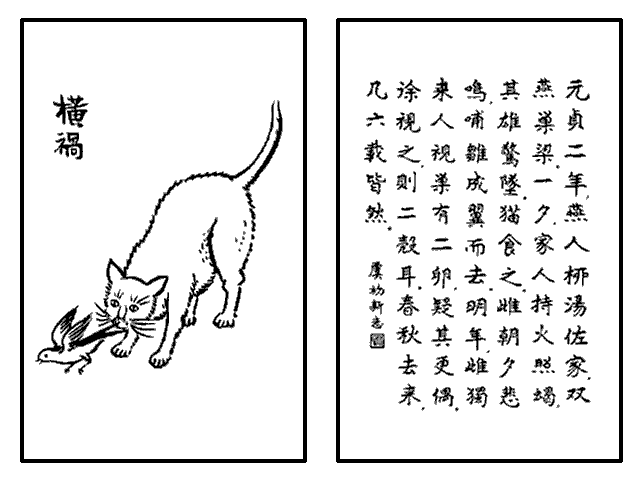 橫禍
元貞二年,燕人柳湯佐家,双
燕巢梁,一夕,家人持火照蝎,
其雄驚墜,猫食之,雌朝夕悲
鳴,哺雛成翼而去,明年,雌獨
来人視巢有二卵,疑其更偶,
徐視之,則二殼耳,春秋去来,
凡六載皆然.
虞初新志